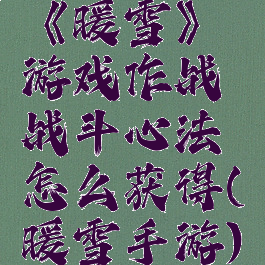 《暖雪》
游戏作战
战斗心法
怎么获得(
暖雪手游)